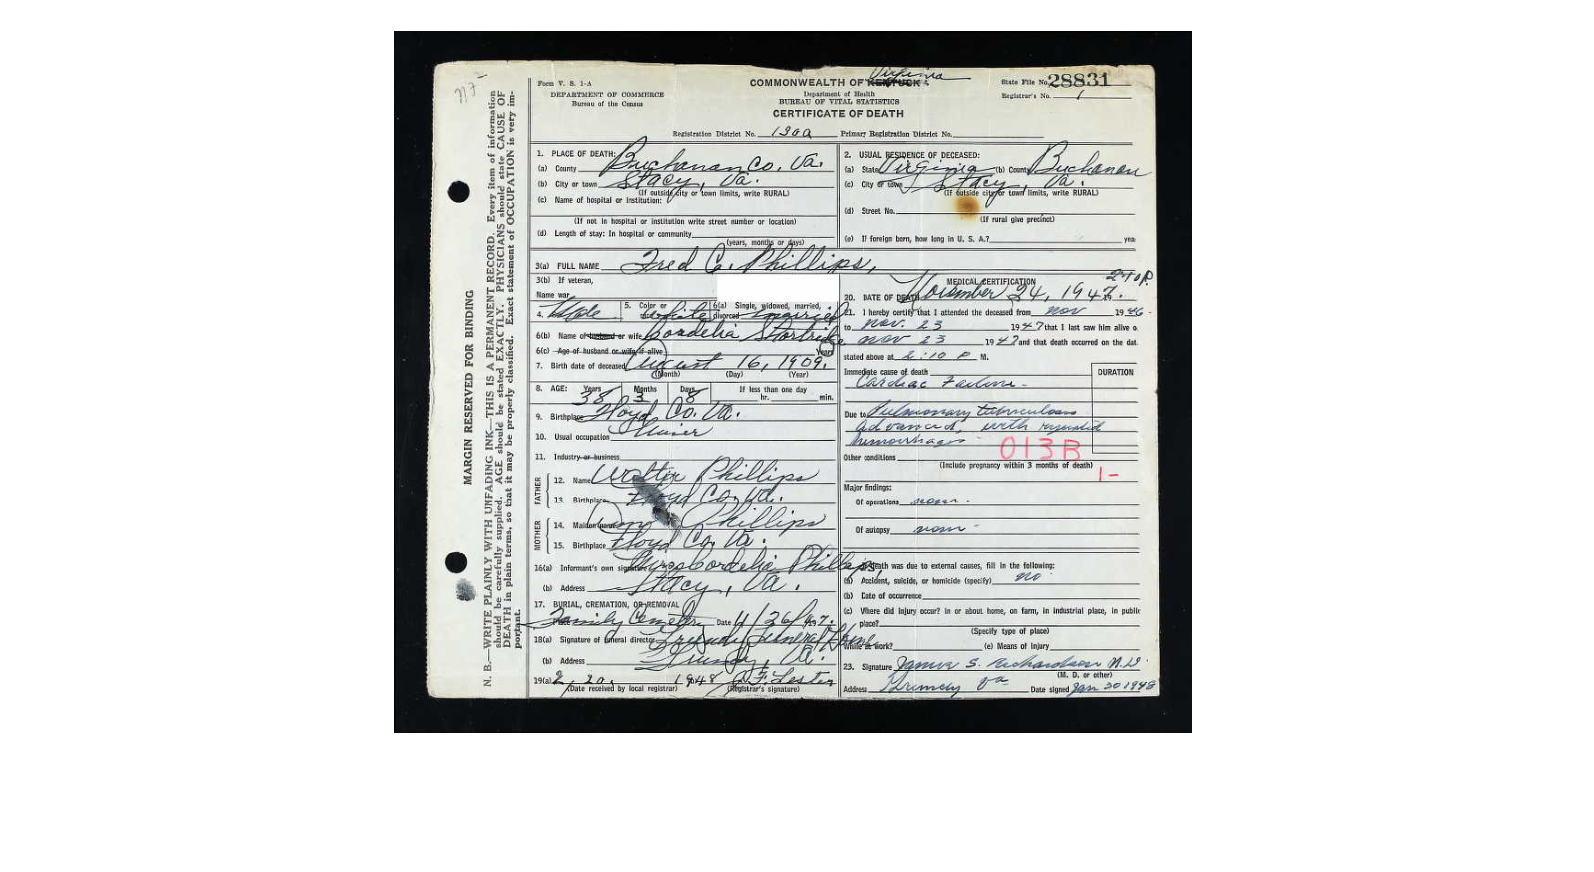 Form V. S. 1-A
DEPARTMENT OF COMMERCE
Bureau of the Census
COMMONWEALTH OF KENTUCKY Virginia
Department of Health
BUREAU OF VITAL STATISTICS
CERTIFICATE OF DEATH
State File No. 28831
Registrar's No. 1
Registration District No. 130a Primary Registration District No.
MARGIN RESERVED FOR BINDING
N. B.—WRITE PLAINLY WITH UNFADING INK—THIS IS A PERMANENT RECORD. Every item of information
should be carefully supplied. AGE should be stated EXACTLY. PHYSICIANS should state CAUSE OF
DEATH in plain terms, so that it may be properly classified. Exact statement of OCCUPATION is very im-
portant.
1. PLACE OF DEATH:
(a) County Buchanan Co. Va.
(b) City or town Stacy, Va.
(If outside city or town limits, write RURAL)
(c) Name of hospital or institution:
(If not in hospital or institution write street number or location)
(d) Length of stay: In hospital or community
(years, months or days)
2. USUAL RESIDENCE OF DECEASED:
(a) State Virginia (b) County Buchanan
(c) City or town Stacy, Va.
(If outside city or town limits, write RURAL)
(d) Street No.
(If rural give precinct)
(e) If foreign born, how long in U. S. A.? yea
3(a) FULL NAME Fred C. Phillips,
3(b) If veteran,
Name war
4. Male 5. Color or race White 6(a) Single, widowed, married, divorced married
6(b) Name of husband or wife Cordelia Startridge
6(c) Age of husband or wife if alive years
7. Birth date of deceased August 16, 1909.
(Month) (Day) (Year)
8. AGE: Years 38 Months 3 Days 8 If less than one day
hr. min.
9. Birthplace Floyd Co. Va.
10. Usual occupation Miner
11. Industry or business
FATHER
12. Name Walter Phillips
13. Birthplace Floyd Co. Va.
MOTHER
14. Maiden name Phillips
15. Birthplace Floyd Co. Va.
16(a) Informant's own signature Mrs Cordelia Phillips,
(b) Address Stacy, Va.
17. BURIAL, CREMATION, OR REMOVAL
Family Cemetery Date 11/26/47.
18(a) Signature of funeral director Grundy Funeral Home
(b) Address Grundy, Va.
19(a) 2, 20, 1948
(Date received by local registrar) (Registrar's signature) Lester
MEDICAL CERTIFICATION
2:10 P.
20. DATE OF DEATH November 24, 1947.
21. I hereby certify that I attended the deceased from Nov 1946
to Nov. 23 1947 that I last saw him alive o
Nov 23 1947 and that death occurred on the dat
stated above at 2:10 P M.
Immediate cause of death DURATION
Cardiac Failure
Due to Pulmonary tuberculosis
advanced, with repeated
hemorrhages
013B
Other conditions
(Include pregnancy within 3 months of death)
1-
Major findings:
Of operations none.
Of autopsy none
If death was due to external causes, fill in the following:
(a) Accident, suicide, or homicide (specify) no
(b) Date of occurrence
(c) Where did injury occur? in or about home, on farm, in industrial place, in public
place?
(Specify type of place)
While at work? (e) Means of Injury
23. Signature James S. Richardson M.D.
(M. D. or other)
Address Grundy Va Date signed Jan 30 1948